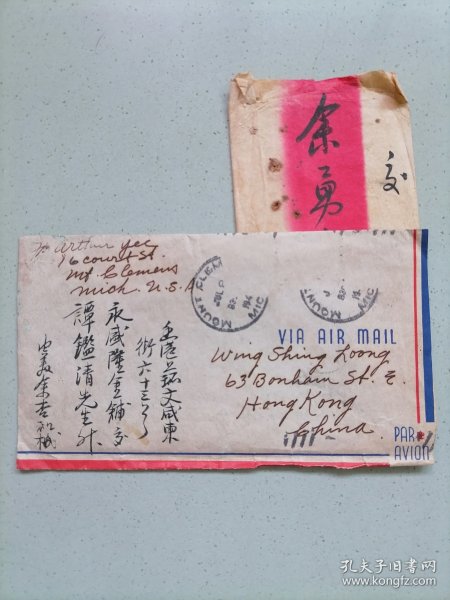 余勇
交
Fr Arthur Yee
16 Court St.
Mt Clemens
Mich. U.S.A
MOUNT CLEM
MIC
MOUNT
MIC
VIA AIR MAIL
Wing Shing Loong
63 Bonham St. E.
Hong Kong
China.
PAR
AVION
香港上環文咸東
街六十三号
永盛隆金舖交
譚鑑清先生升
由美余吉
孔夫子旧书网
www.kongfz.com